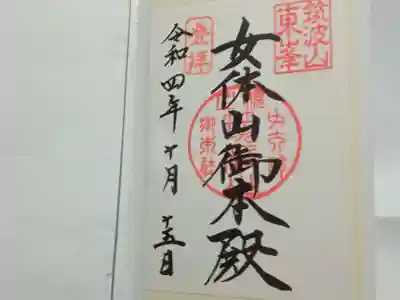 筑波山
東峯
女体山御本殿
登拝
令和四年十月十五日